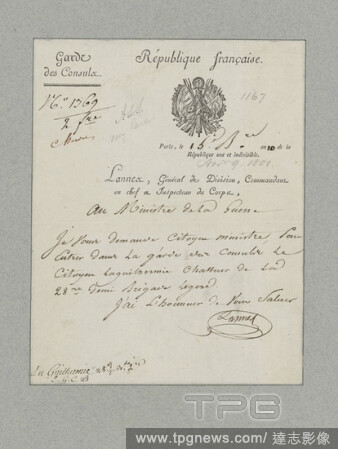 Garde
des Consuls.
République française.
N.° 1769
2 
1167
Paris, le 15 B.re an 10 de la
République une et indivisible.
Nov. 9. 1801
Lannes, Général de Division, Commandant
en chef et Inspecteur du Corps,
Au Ministre de la Guerre
Je vous demande Citoyen ministre pour
entrer dans la garde des Consuls le
Citoyen Chasseur de la
28me Demi Brigade Légère
J'ai L'honneur de vous Saluer
Lannes
TPG
www.tpgnews.com/達志影像